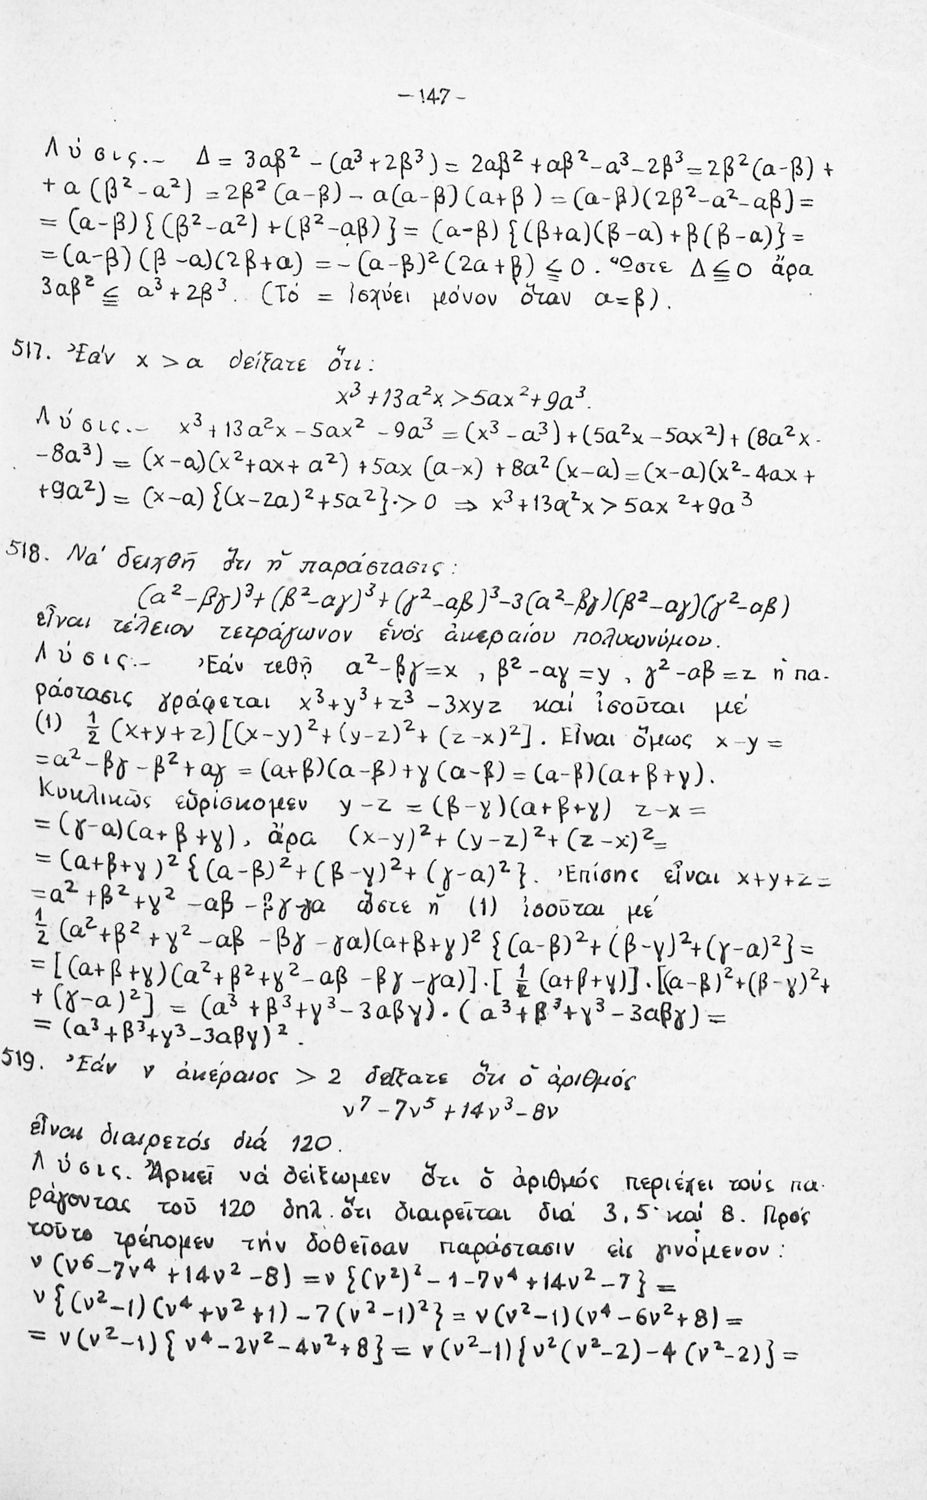 - 147 -
Λύσις.- Δ = 3αβ² - (α³+2β³) = 2αβ²+αβ²-α³-2β³ = 2β²(α-β) +
+ α (β²-α²) = 2β² (α-β) - α(α-β)(α+β) = (α-β)(2β²-α²-αβ) =
= (α-β) {(β²-α²) + (β²-αβ)} = (α-β) {(β+α)(β-α) + β(β-α)} =
= (α-β) (β-α)(2β+α) = - (α-β)² (2α+β) ≦ 0. Ὥστε Δ ≦ 0 ἄρα
3αβ² ≦ α³+2β³. (Τό = ἰσχύει μόνον ὅταν α=β).
517. Ἐάν x > α δείξατε ὅτι:
x³+13α²x > 5αx²+9α³.
Λύσις.- x³+13α²x - 5αx² - 9α³ = (x³-α³) + (5α²x - 5αx²) + (8α²x -
-8α³) = (x-α)(x²+αx+α²) + 5αx (α-x) + 8α² (x-α) = (x-α)(x²-4αx +
+9α²) = (x-α) {(x-2α)²+5α²} > 0 ⇒ x³+13α²x > 5αx²+9α³
518. Νά δειχθῆ ὅτι ἡ παράστασις:
(α²-βγ)³ + (β²-αγ)³ + (γ²-αβ)³ - 3(α²-βγ)(β²-αγ)(γ²-αβ)
εἶναι τέλειον τετράγωνον ἑνός ἀκεραίου πολυωνύμου.
Λύσις.- Ἐάν τεθῆ α²-βγ=x , β²-αγ=y , γ²-αβ=z ἡ πα-
ράστασις γράφεται x³+y³+z³ - 3xyz καί ἰσοῦται μέ
(1) ½ (x+y+z) [(x-y)²+(y-z)²+(z-x)²]. Εἶναι ὅμως x-y =
=α²-βγ-β²+αγ = (α+β)(α-β)+γ(α-β) = (α-β)(α+β+γ).
Κυκλικῶς εὑρίσκομεν y-z = (β-γ)(α+β+γ) z-x =
= (γ-α)(α+β+γ), ἄρα (x-y)²+(y-z)²+(z-x)²=
= (α+β+γ)² {(α-β)²+(β-γ)²+(γ-α)²}. Ἐπίσης εἶναι x+y+z =
=α²+β²+γ² -αβ-βγ-γα ὥστε ἡ (1) ἰσοῦται μέ
½ (α²+β²+γ²-αβ-βγ-γα)(α+β+γ)² {(α-β)²+(β-γ)²+(γ-α)²} =
= [(α+β+γ)(α²+β²+γ²-αβ-βγ-γα)].[ ½ (α+β+γ)].[(α-β)²+(β-γ)²+
+ (γ-α)²] = (α³+β³+γ³-3αβγ).(α³+β³+γ³-3αβγ) =
= (α³+β³+γ³-3αβγ)².
519. Ἐάν ν ἀκέραιος > 2 δείξατε ὅτι ὁ ἀριθμός
ν⁷-7ν⁵+14ν³-8ν
εἶναι διαιρετός διά 120.
Λύσις. Ἀρκεῖ νά δείξωμεν ὅτι ὁ ἀριθμός περιέχει τούς πα-
ράγοντας τοῦ 120 δηλ. ὅτι διαιρεῖται διά 3,5 καί 8. Πρός
τοῦτο τρέπομεν τήν δοθεῖσαν παράστασιν εἰς γινόμενον:
ν (ν⁶-7ν⁴+14ν²-8) = ν {(ν²)³-1-7ν⁴+14ν²-7} =
ν {(ν²-1)(ν⁴+ν²+1) - 7(ν²-1)²} = ν(ν²-1)(ν⁴-6ν²+8) =
= ν(ν²-1) { ν⁴-2ν²-4ν²+8} = ν(ν²-1) {ν²(ν²-2)-4(ν²-2)} =